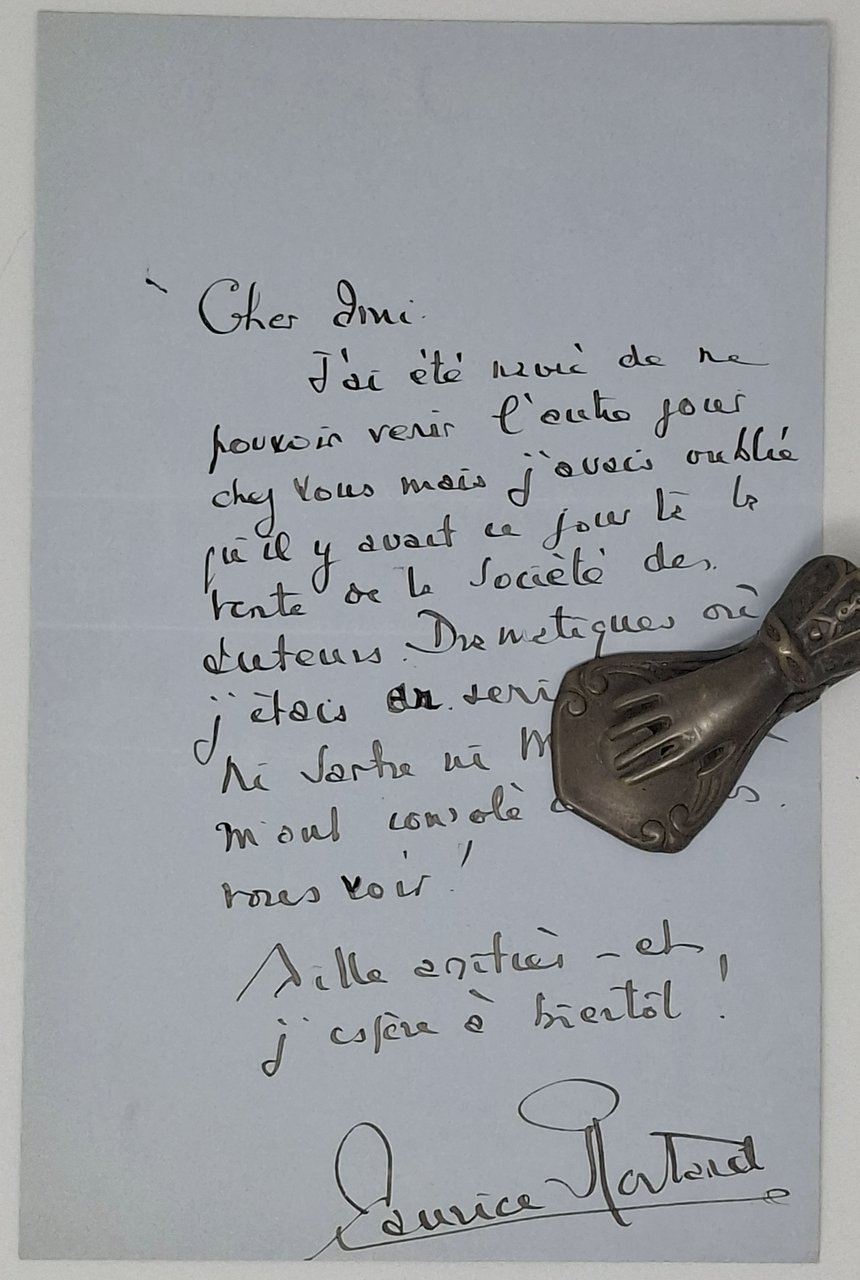 Cher Ami.
J'ai été navré de ne
pouvoir venir l'autre jour
chez vous mais j'avais oublié
qu'il y avait ce jour là la
vente de la Société des
Auteurs Dramatiques où
j'étais
Ni Sartre ni
m'ont consolé
vous voir !
Mille amitiés - et
j'espère à bientôt !
Maurice Rostand